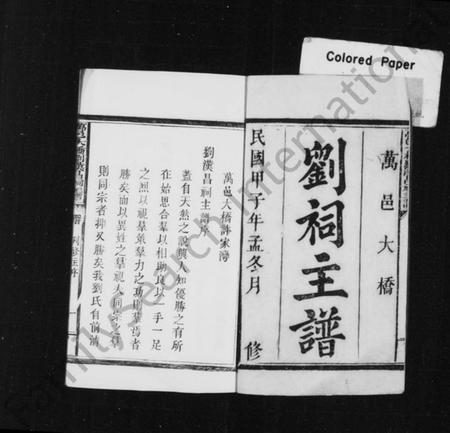 Colored Paper
萬邑大橋
劉祠主譜
民國甲子年孟冬月 修
萬邑大橋許家灣
劉漢昌祠主譜序
蓋有天然之説
人知優勝之有所
在始思合羣以相助良以一手一足
之烈以視羣策羣力之
勝矣而以異姓之羣視夫同宗之
則同宗者抑又勝矣我劉氏自前清
FamilySearch International